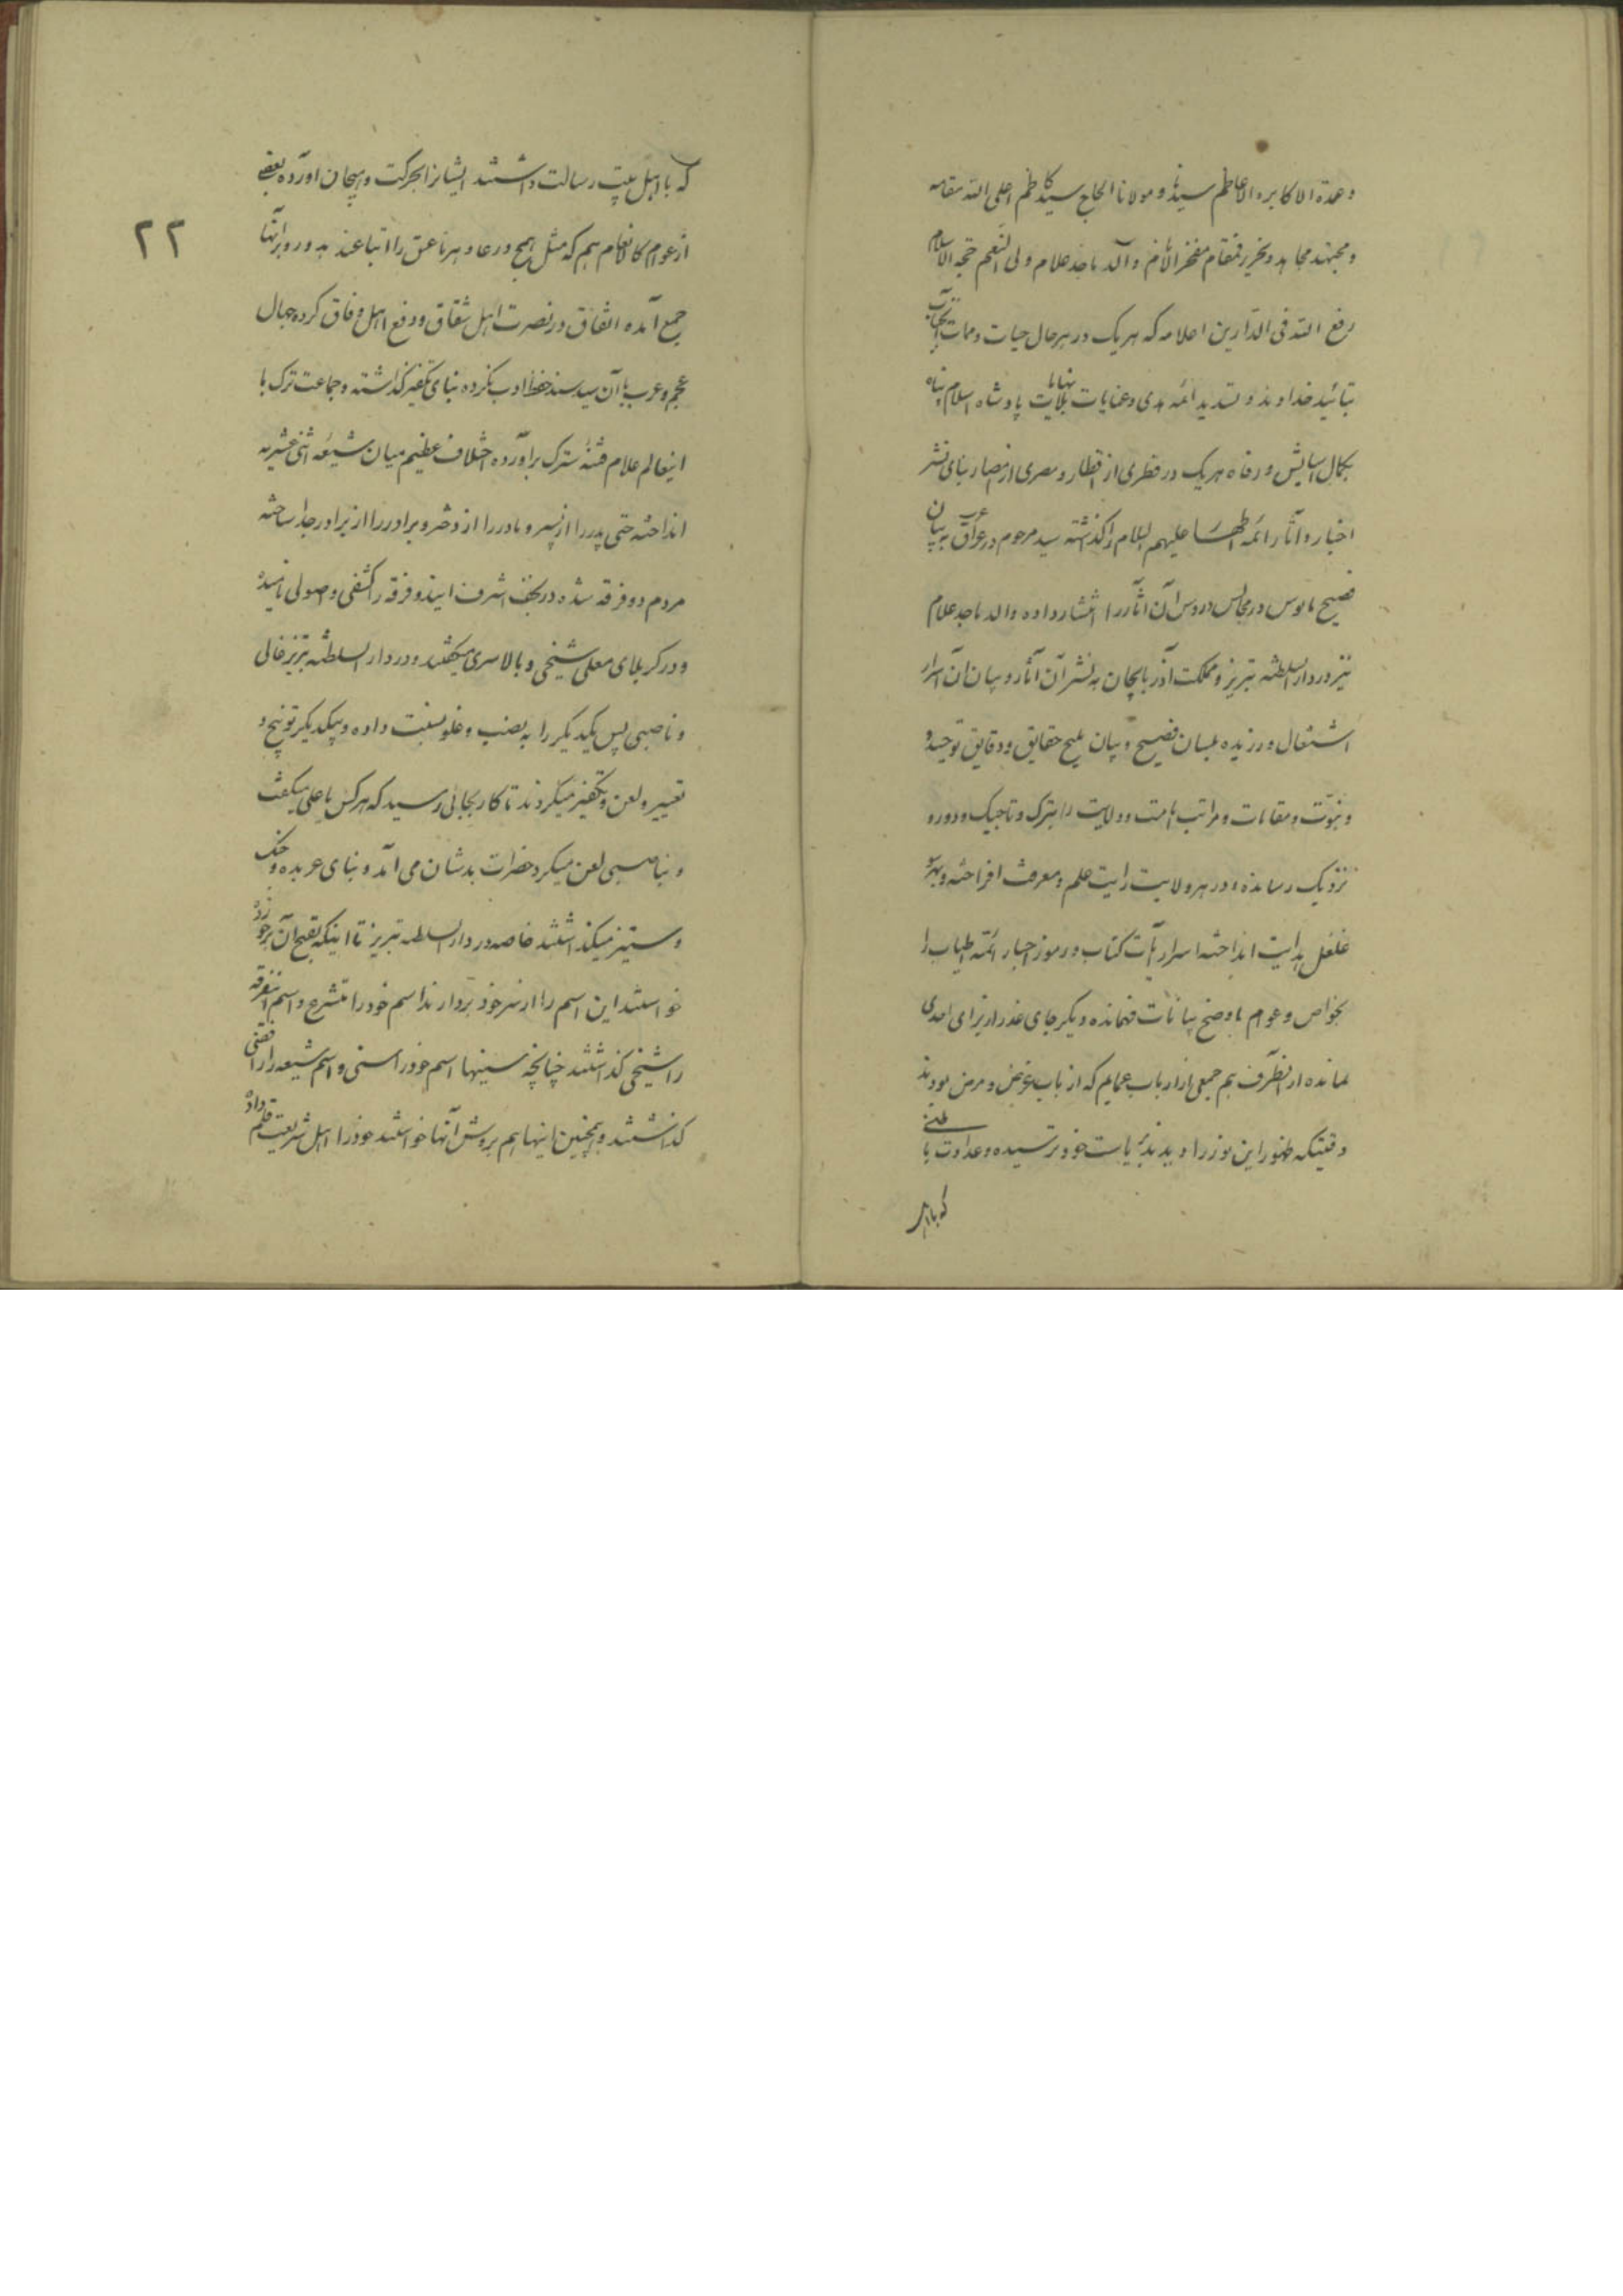 و عمدة الاکابر و الاعاظم سیدنا و مولانا الحاج سید کاظم اعلی الله مقامه
و مجتهد مجاهد و نحریر قمقام مفخر الانام والد ماجد علام ولی النعم حجة الاسلام
رفع الله فی الدارین اعلامه که هر یک در هر حال حیات و ممات آنجناب
بتائید خداوند و تسدید ائمه هدی و عنایات بلانهایات پادشاه اسلام پناه
بکمال آسایش و رفاه هر یک در قطری از اقطار و مصری از امصار بنای نشر
اخبار و آثار ائمه اطهار علیهم السلام را گذاشته سید مرحوم در عراق عرب به بیان
فصیح مانوس در مجالس دروس آن آثار را انتشار داده والد ماجد علام
نیز در دار السلطنه تبریز و مملکت آذربایجان به نشر آن آثار و بیان آن اسرار
اشتغال ورزیده بلسان فصیح و بیان ملیح حقایق و دقایق توحید و
و نبوّت و مقامات و مراتب امامت و ولایت را بترک و تاجیک و دور و
نزدیک رسانده و در هر ولایت رایت علم و معرفت افراخته و بهر
غلغل هدایت انداخته اسرار آیات کتاب و رموز اخبار ائمه اطیاب را
بخواص و عوام باوضح بیانات فهمانده دیگر جای عذر از برای احدی
نمانده از آنطرف هم جمعی از ارباب عمایم که از باب غرض و مرض بودند
وقتیکه ظهور این نور را دیدند بریاست خود ترسیده و عداوت باطنی
که با اهل
که با اهل بیت رسالت داشتند ایشانرا بحرکت و هیجان آورده بعضی
از عوام کالانعام هم که مثل همج و رعاء و هر ناعق را اتباعند به دور و بر آنها
جمع آمده اتفاق در نصرت اهل شقاق و دفع اهل وفاق کرده جهال
عجم و عرب با آن سید سند حفظ ادب نکرده بنای تکفیر گذاشته و جماعت ترک با
اینعالم علام فتنهٔ سترک برآورده اختلاف عظیم میان شیعه اثنی عشریه
انداخته حتی پدر را از پسر و مادر را از دختر و برادر را از برادر جدا ساخته
مردم دو فرقه شده در نجف اشرف ایندو فرقه را کشفی و اصولی نامیده
و در کربلای معلی شیخی و بالاسری میگفتند و در دار السلطنه تبریز غالی
و ناصبی پس یکدیگر را به نصب و غلو نسبت داده و بیکدیگر توبیخ و
تعییر و لعن و تکفیر میکردند تا کار بجائی رسید که هر کس یا علی میگفت
و بناصبی لعن میکرد حضرات بدشان می آمد و بنای عربده و جنک
و ستیز میگذاشتند خاصه در دار السلطنه تبریز تا اینکه قبح آن برخورده
خواستند این اسم را از سر خود بردارند اسم خود را متشرع و اسم اینفرقه
را شیخی گذاشتند چنانچه سنیها اسم خود را سنی و اسم شیعه را رافضی
گذاشتند و همچنین اینها هم بروش آنها خواستند خود را اهل شریعت قلم داده
۲۲